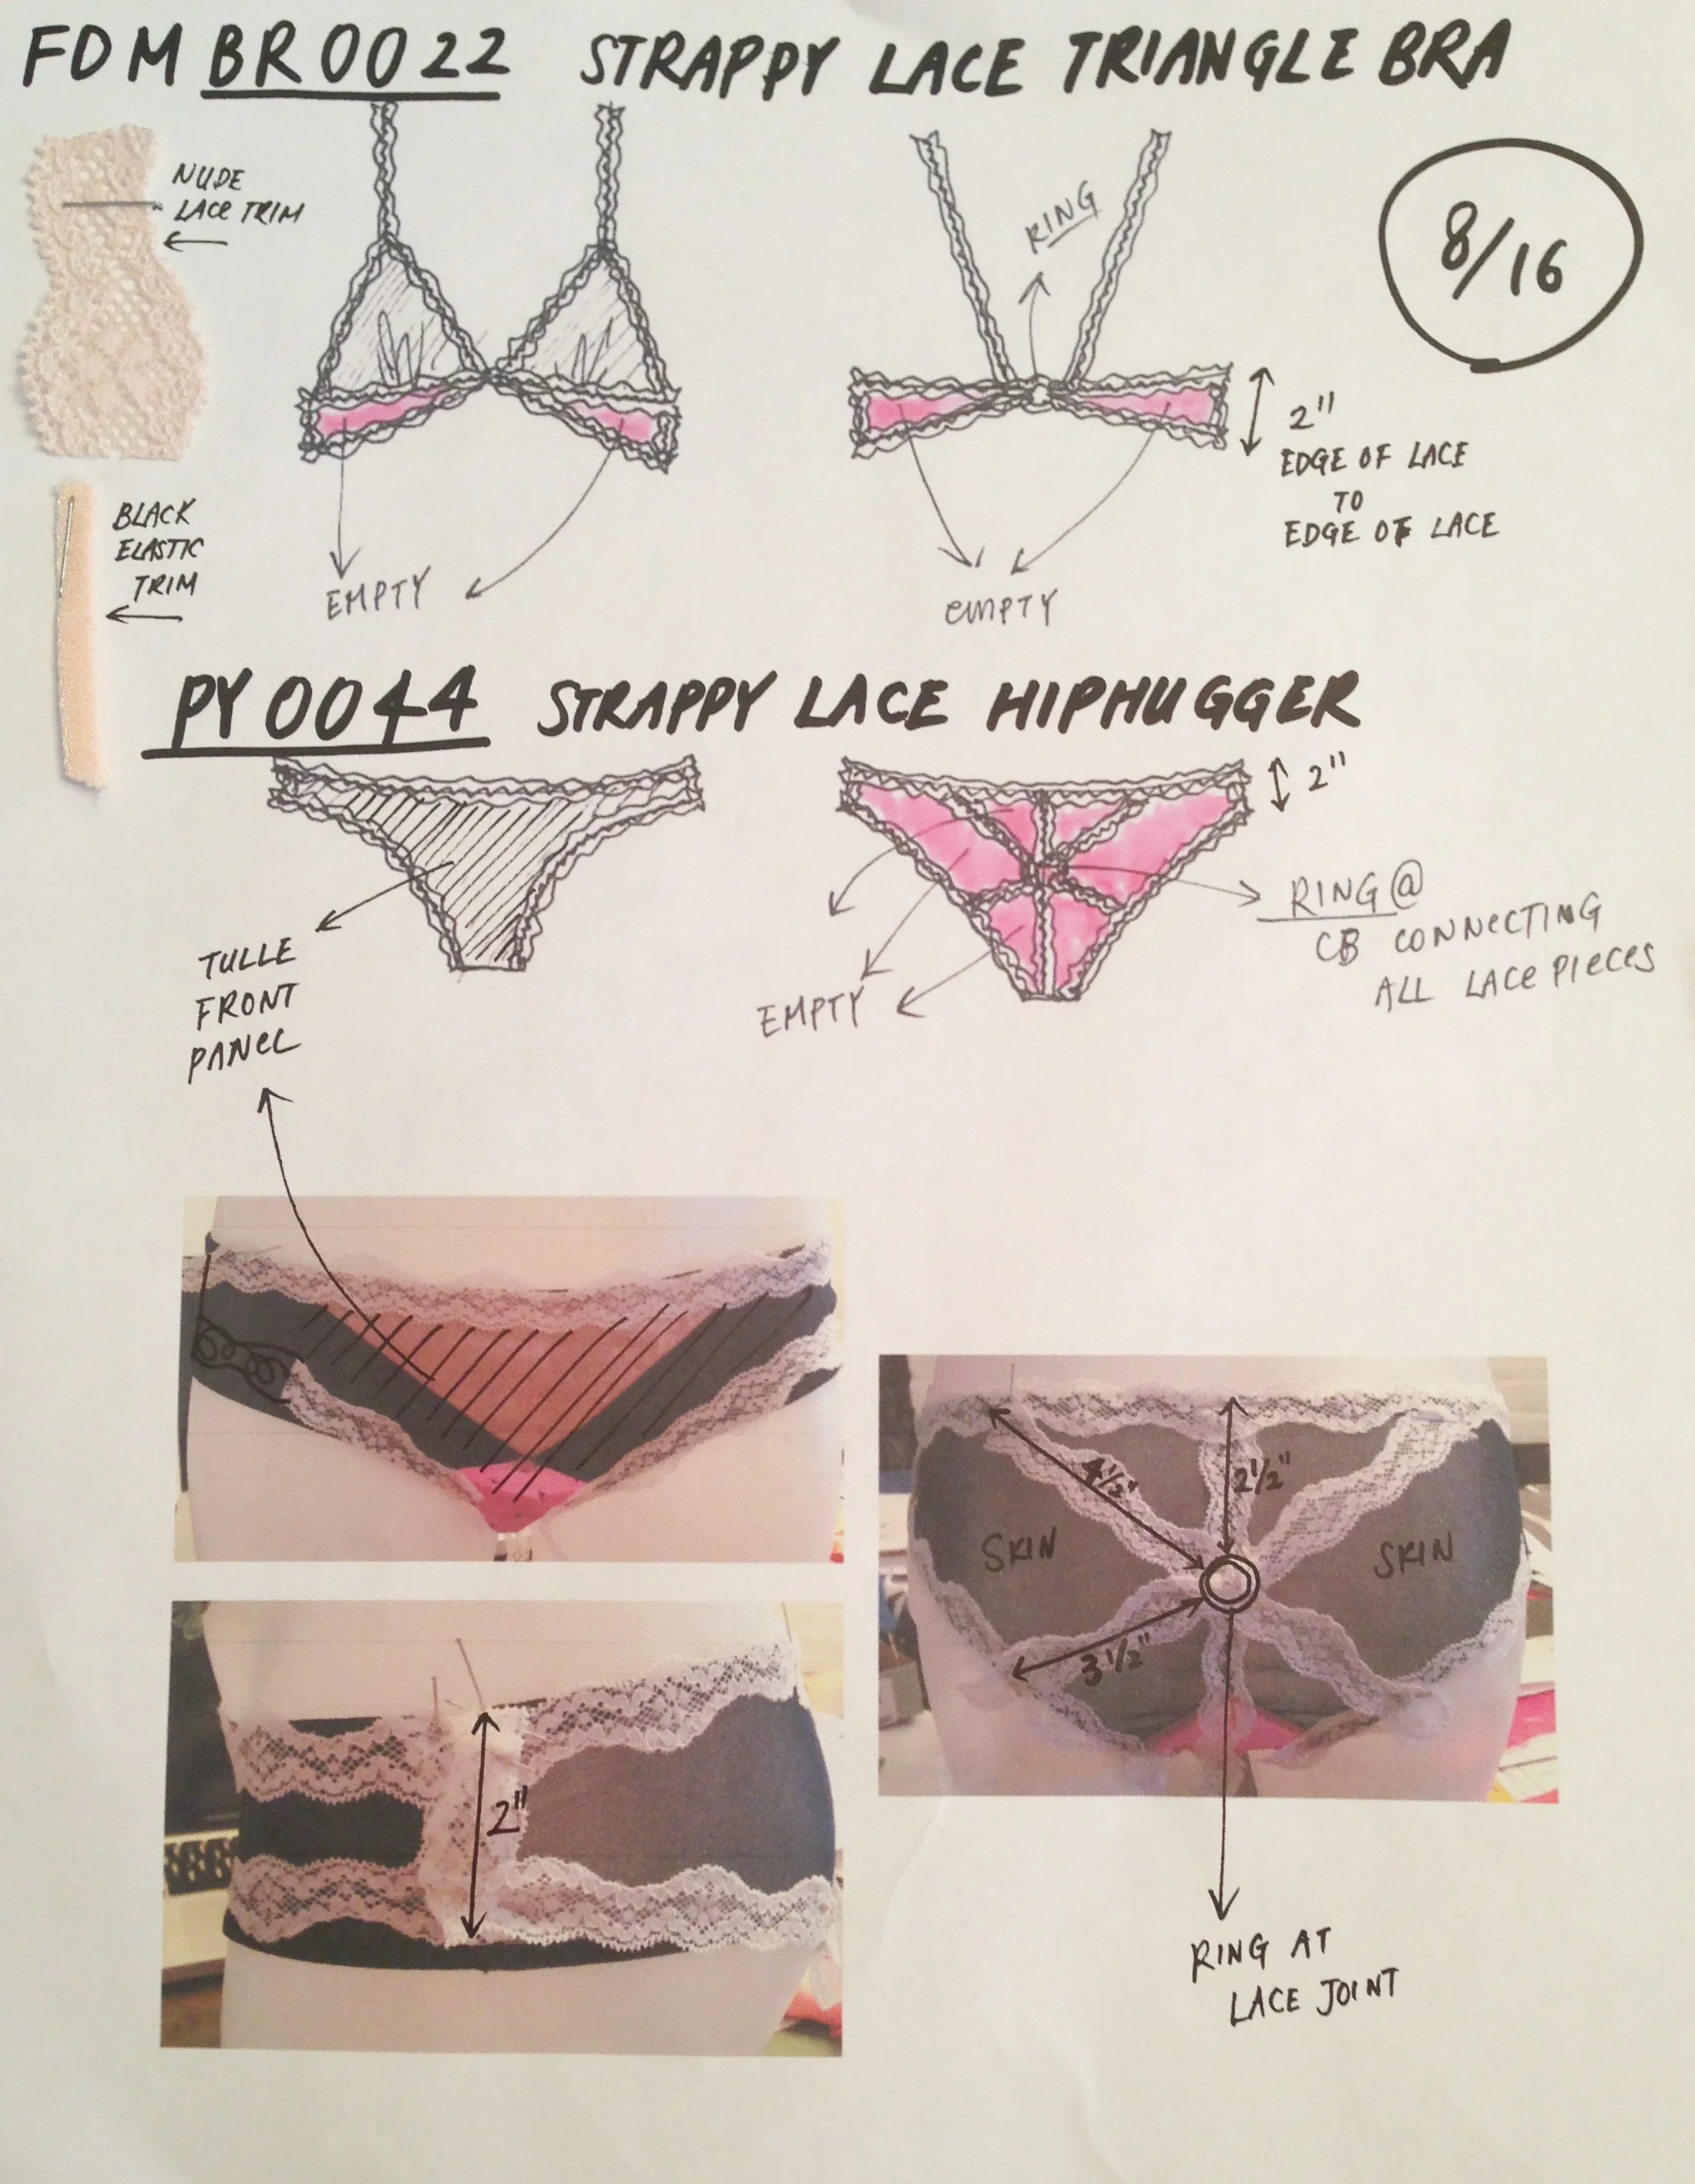 FDM BR0022 STRAPPY LACE TRIANGLE BRA
8/16
NUDE
LACE TRIM
RING
BLACK
ELASTIC
TRIM
2"
EDGE OF LACE
TO
EDGE OF LACE
EMPTY
EMPTY
PY0044 STRAPPY LACE HIPHUGGER
2"
TULLE
FRONT
PANEL
EMPTY
RING @
CB CONNECTING
ALL LACE PIECES
4 1/2"
2 1/2"
SKIN
SKIN
3 1/2"
2"
RING AT
LACE JOINT